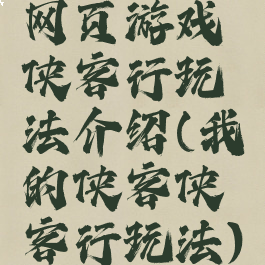 网页游戏
侠客行玩
法介绍(我
的侠客侠
客行玩法)